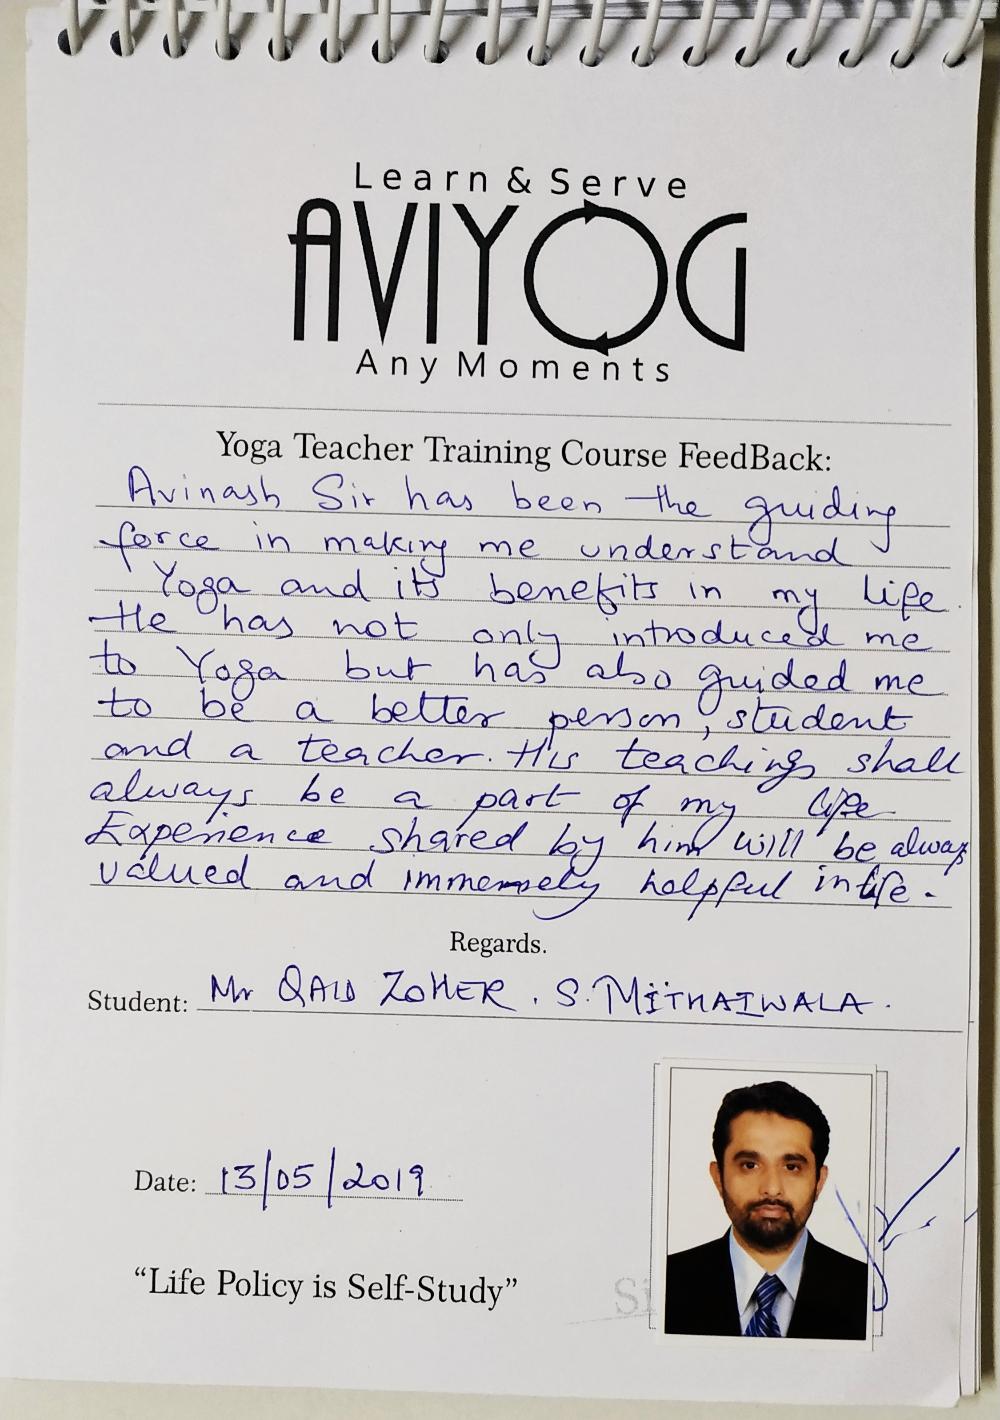 Learn & Serve
AVIYOG
Any Moments
Yoga Teacher Training Course FeedBack:
Avinash Sir has been the guiding
force in making me understand
Yoga and its benefits in my life.
He has not only introduced me
to Yoga but has also guided me
to be a better person, student
and a teacher. His teachings shall
always be a part of my life
Experience shared by him will be always
valued and immensely helpful in life.
Regards.
Student: Mr QAID ZOHER. S. MITHAIWALA.
Date: 13/05/2019
"Life Policy is Self-Study"